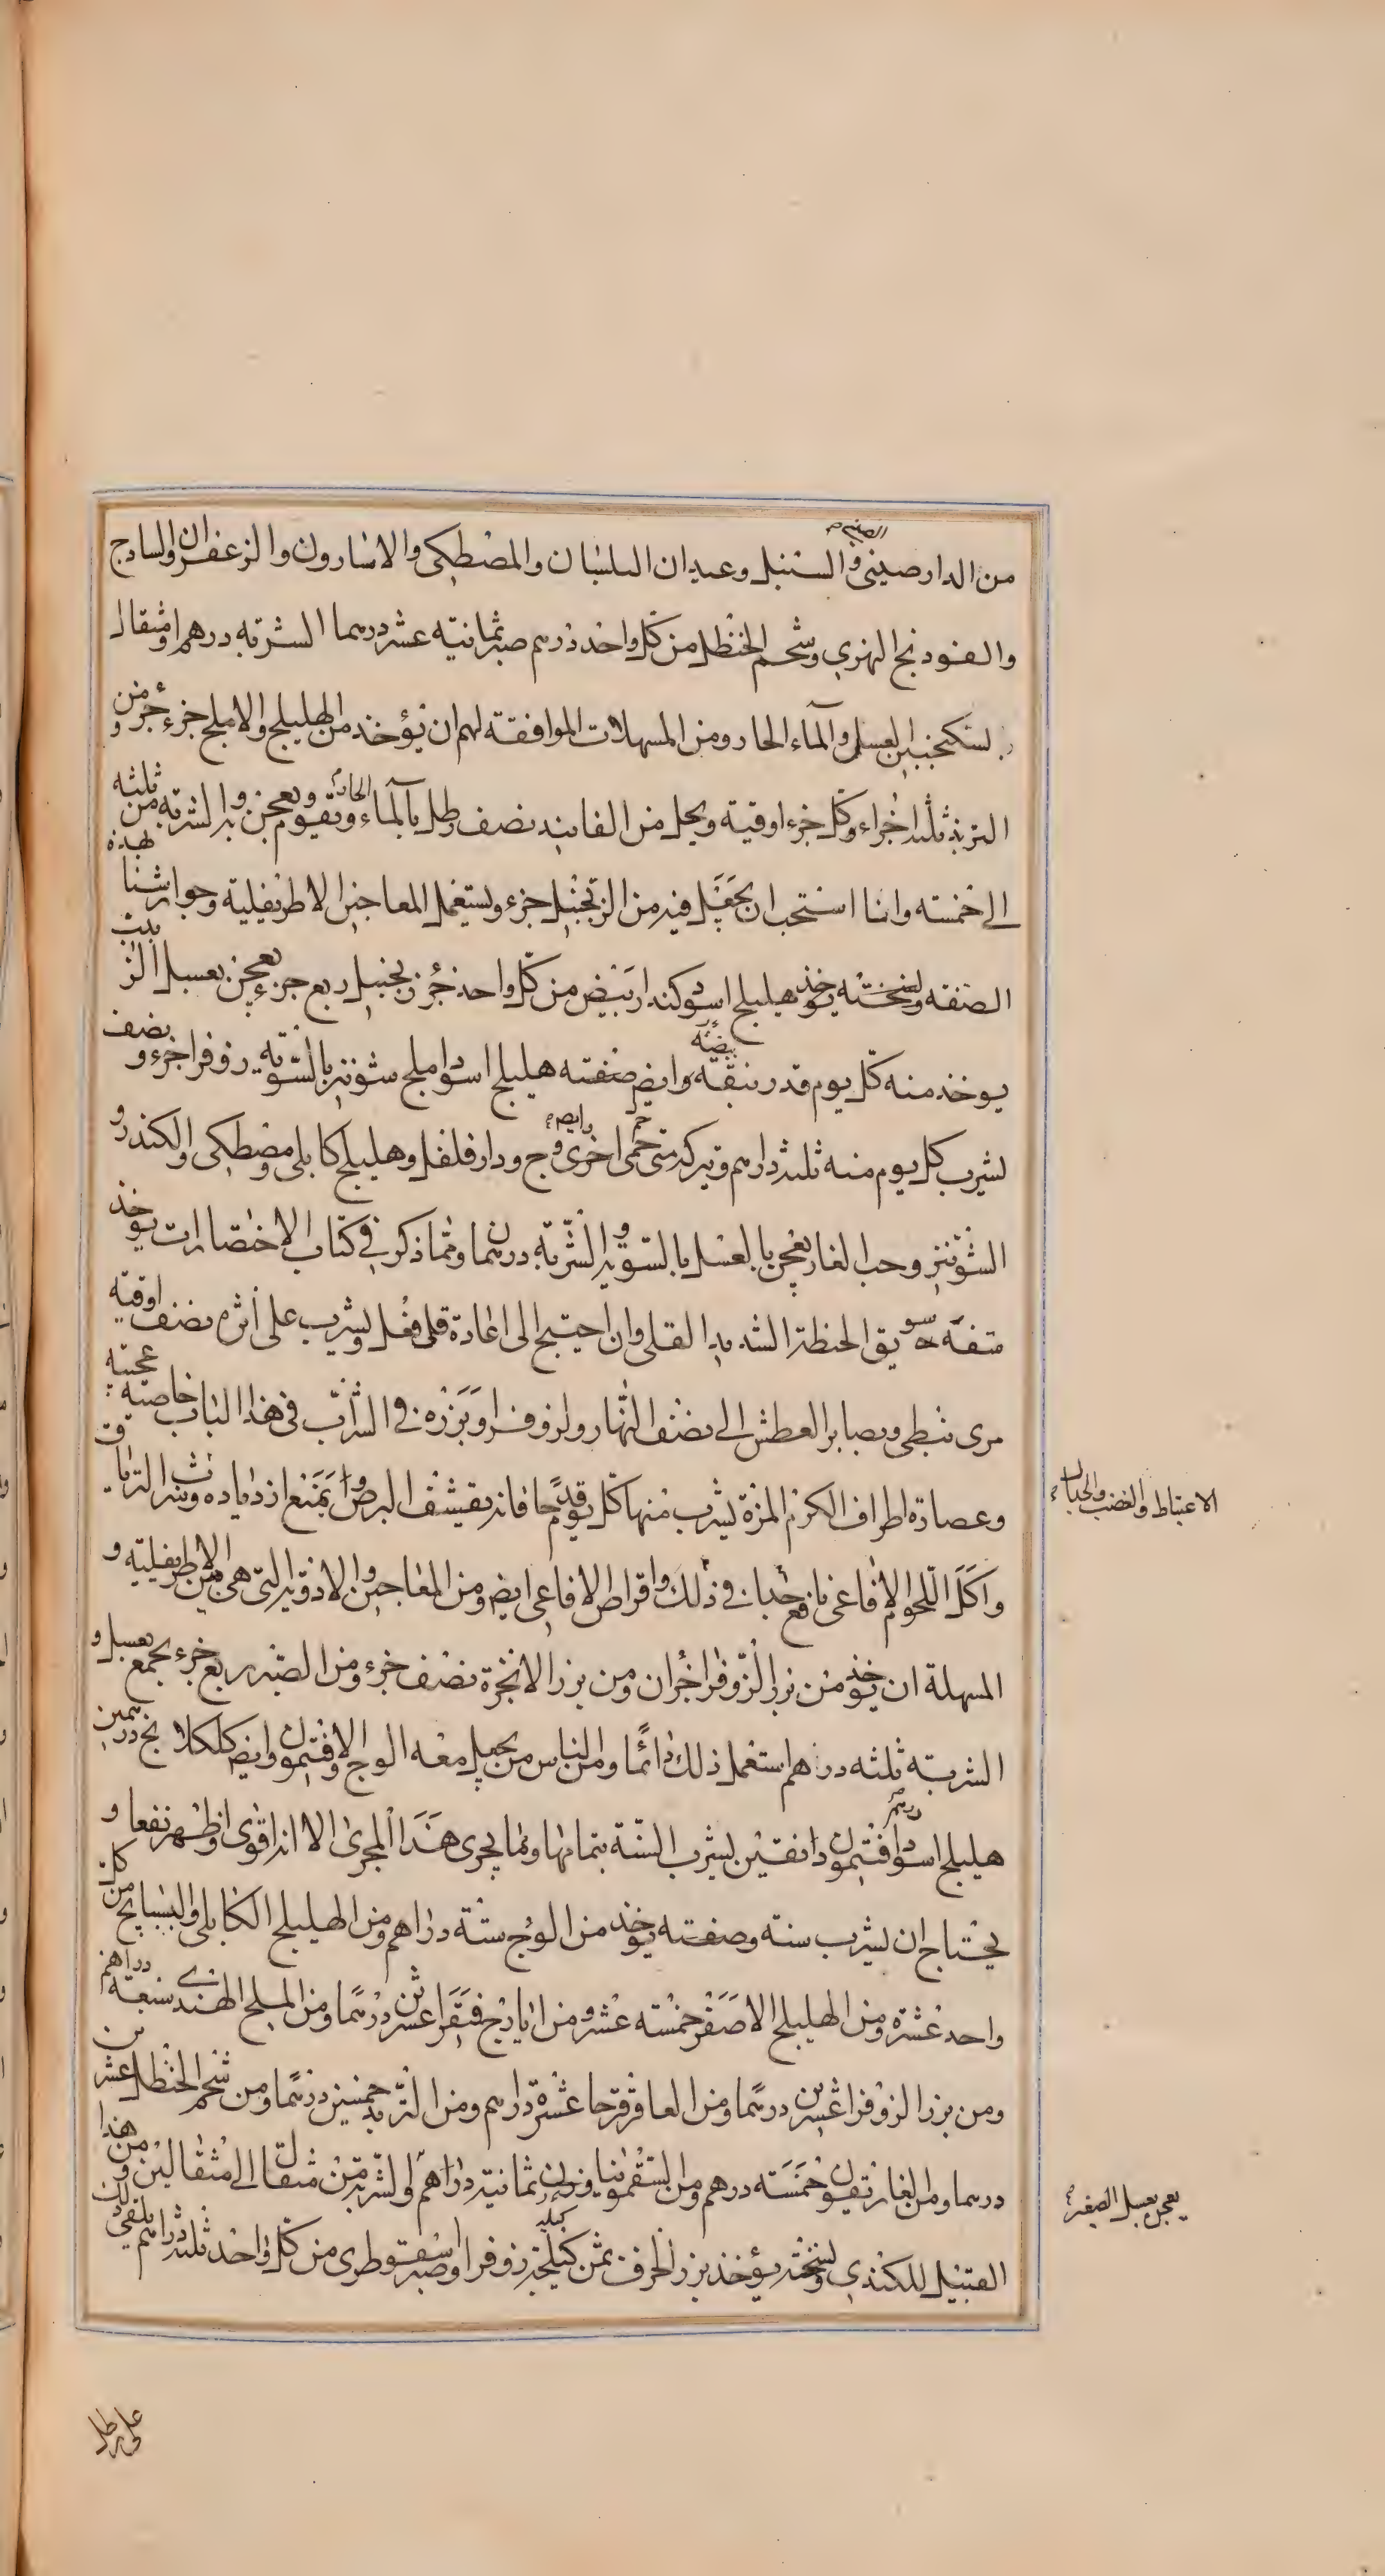 من الدارصينى والسنبل وعيدان البلسان والمصطكى والاسارون والزعفران والسادج
والفودنج النهرى وشحم الحنظل من كل واحد درهم صبر ثمانية عشر درهما الشربة درهم او مثقال
بسكنجبين العسل والماء الحار ومن المسهلات الموافقة لهم ان يؤخذ من الهليلج والاملج جزء جزء ومن
التربذ ثلثة اجزاء وكل جزء اوقية ويحل من الفانيد نصف رطل بالماء الحار ويقوم ويعجن به والشربة من ثلثة
الى خمسة وانا استحب ان يجعل فيه من الزنجبيل جزء ويستعمل المعاجين الاطريفلية وجوارشنا بهذه
الصفة ونسخته يوخذ هليلج اسود كندر ابيض من كل واحد جزء زنجبيل ربع جزء يعجن بعسل الزبيب
يوخذ منه كل يوم قدر بيضة وايض صفته هليلج اسود املج شونيز بالسوية زوفرا جزء ونصف
يشرب كل يوم منه ثلثة دراهم ويتركه متى حمى اخرى وايض وج ودارفلفل وهليلج كابلى ومصطكى والكندر و
الشونيز وحب الغار يعجن بالعسل بالسوية والشربة درهمان ومما ذكر فى كتاب الاختصارات يوخذ
سفة سويق الحنطة الشديد القلى وان احتيج الى اعادة قلى فعل ويشرب على اثره نصف اوقية
مرى نبطى ويصابر العطش الى نصف النهار ولزوفرا وبزره فى الشراب فى هذا الباب خاصية عجيبة
وعصارة اطراف الكرم المزة يشرب منها كل يوم قدحا فانه يقشف البرص او يمنع ازدياده وشرب الترياق
واكل اللحوم الافاعى نافع جدا فى ذلك واقراص الافاعى ايض ومن المعاجين والادوية التى هى بين الاطريفلية و
المسهلة ان يؤخذ من بزر الزوفرا جزان ومن بزر الانجرة نصف جزء ومن الصبر ربع جزء يجمع بعسل و
الشربة ثلثة دراهم استعمل ذلك دائما ومن الناس من يجعل معه الوج والافتيمون وايض كلكلانج درهمين
هليلج اسود درهم افتيمون دانقين يشرب السنة بتمامها ومما يجرى هذا المجرى الا انه اقوى واظهر نفعا و
يحتاج ان يشرب سنة وصفته يوخذ من الوج ستة دراهم ومن الهليلج الكابلى والبسبايج من كل
واحد عشرة ومن الهليلج الاصفر خمسة عشر ومن ايارج فيقرا عشرين درهما ومن الملح الهندى سبعة دراهم
ومن بزر الزوفرا عشرين درهما ومن العاقرقرحا عشرة دراهم ومن التربد خمسين درهما ومن شحم الحنظل عشرين
درهما ومن الغاريقون خمسة درهم ومن السقمونيا وزن ثمانية دراهم والشربة من مثقال الى مثقالين ومن هذا
القبيل للكندى ونسخته يؤخذ بزر الحرف ثمن كيلجة زوفرا وصبر اسقوطرى من كل واحد ثلثة دراهم يلقى ذلك
على رطل
الاغتباط والغضب والحمات
يعجن بعسل الصفر